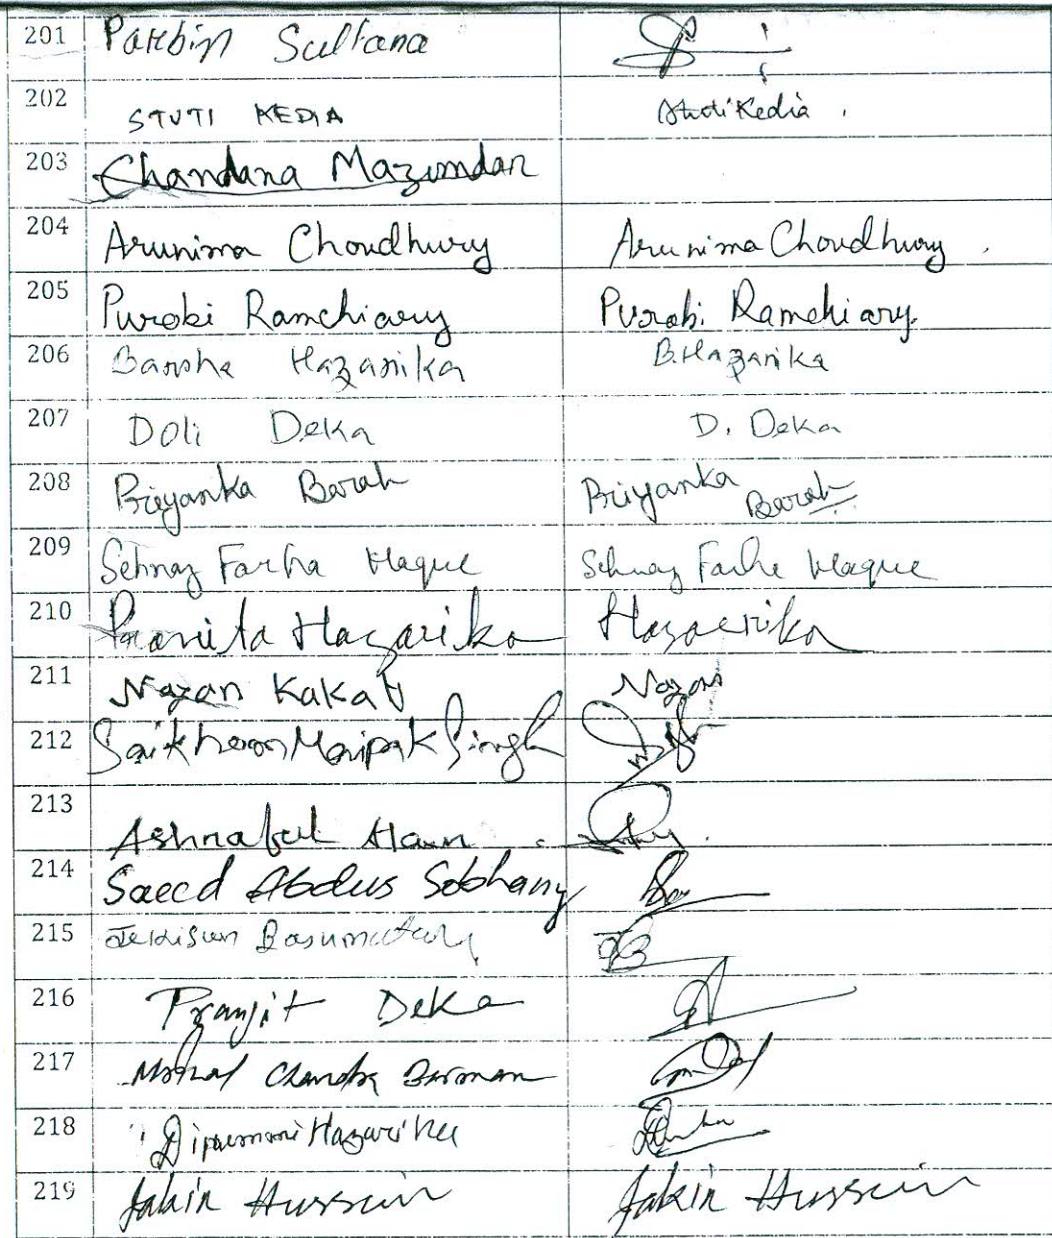 201 Parbin Sultana
202 STUTI KEDIA Stuti Kedia .
203 Chandana Mazumdar
204 Arunima Choudhury Arunima Choudhury .
205 Purobi Ramchiary Purabi Ramchiary.
206 Barsha Hazarika B. Hazarika
207 Doli Deka D. Deka
208 Priyanka Barah Priyanka Barah
209 Sehnaz Farha Haque Sehnaz Farha Haque
210 Pranita Hazarika Hazarika
211 Nayan Kakati Nayan
212 Singh
213 Ashraful Alam
214 Saeed Abdus Sobhany
215 Basumatary
216 Pranjit Deka
217 Chandra Barman
218 Hazarika
219 Jakir Hussain Jakir Hussain